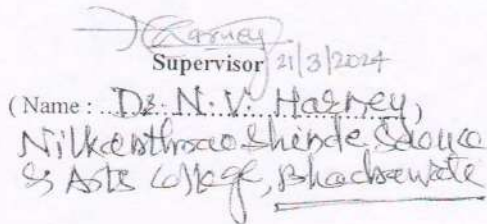 Supervisor 21/3/2024
(Name : Dr. N. V. Harney,
Nilkanthrao Shinde Science
& Arts College, Bhadrawati